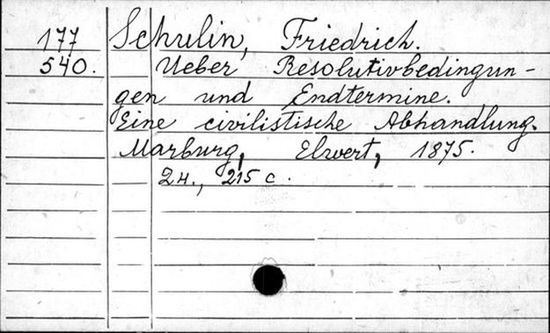 177 Schulin, Friedrich.
540. Ueber Resolutivbedingun-
gen und Endtermine.
Eine civilistische Abhandlung.
Marburg, Elwert, 1875.
2 н., 215 с.